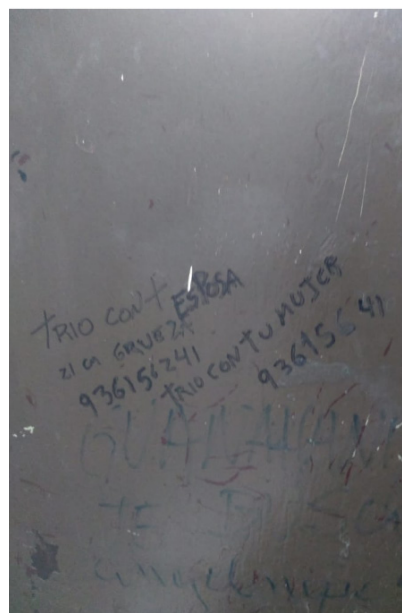 TRIO CON T ESPOSA
21 CM GRUEZA
936156241
TRIO CON TU MUJER
936156 41
TE BUSCA